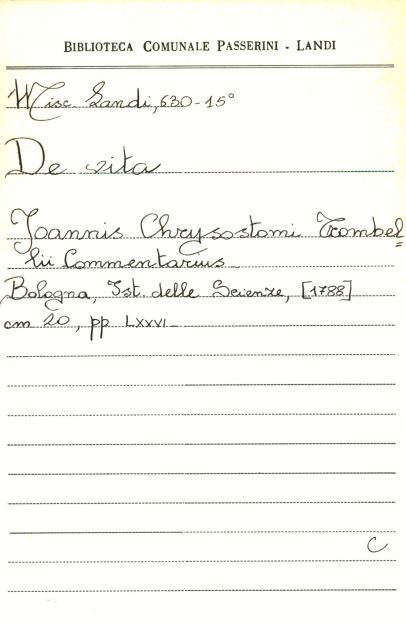 BIBLIOTECA COMUNALE PASSERINI - LANDI
Misc. Landi, 630-15°
De vita
Joannis Chrysostomi Trombel=
lii Commentarius
Bologna, Ist. delle Scienze, [1788]
cm 20, pp LXXVI
C